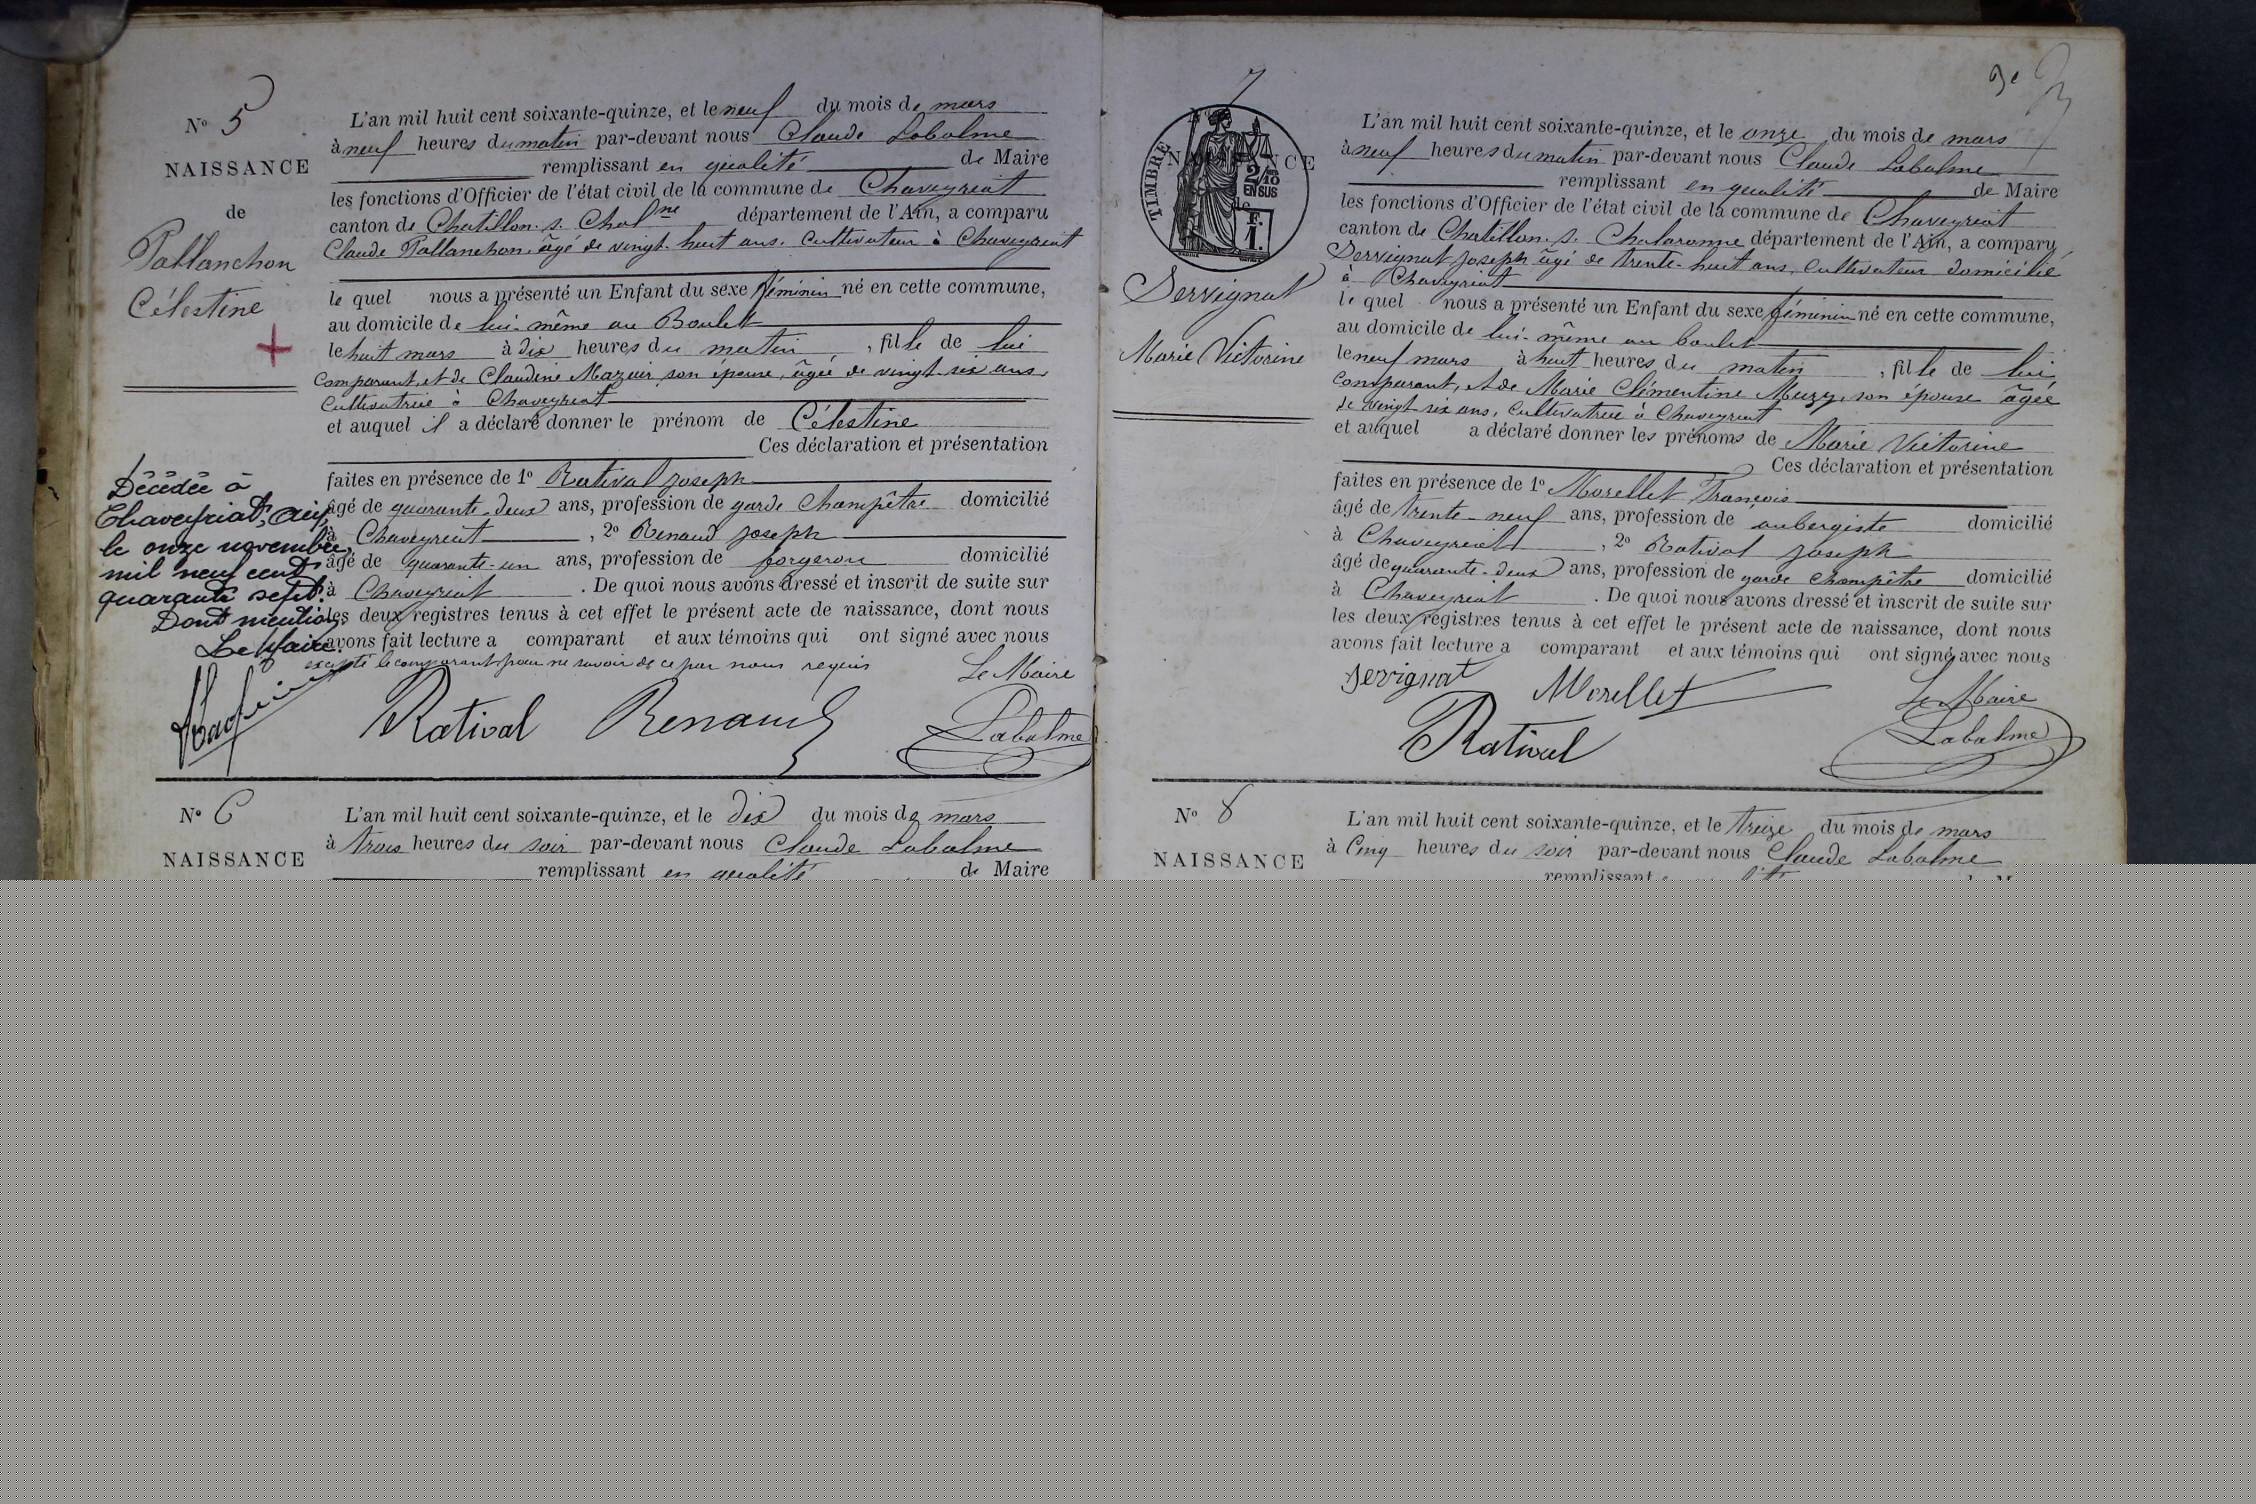 N° 5
NAISSANCE
de
Pallanchon
Célestine
L'an mil huit cent soixante-quinze, et le neuf du mois de mars
à neuf heures du matin par-devant nous Claude Labalme
remplissant en qualité de Maire
les fonctions d'Officier de l'état civil de la commune de Chaveyriat
canton de Chatillon s. Chalne département de l'Ain, a comparu
Claude Pallanchon, âgé de vingt-huit ans, cultivateur à Chaveyriat
le quel nous a présenté un Enfant du sexe féminin né en cette commune,
au domicile de lui-même au Boulet
le huit mars à dix heures du matin, fille de lui
comparant, et de Claudine Mazuir son épouse, âgée de vingt-six ans,
cultivatrice à Chaveyriat
et auquel il a déclaré donner le prénom de Célestine
Ces déclaration et présentation
faites en présence de 1° Ratival Joseph
âgé de quarante-deux ans, profession de garde champêtre domicilié
à Chaveyriat, 2° Renaud Joseph
âgé de quarante-un ans, profession de forgeron domicilié
à Chaveyriat. De quoi nous avons dressé et inscrit de suite sur
les deux registres tenus à cet effet le présent acte de naissance, dont nous
avons fait lecture a comparant et aux témoins qui ont signé avec nous
excepté le comparant pour ne savoir de ce par nous requis
Le Maire
Ratival Renaud Labalme
Décédée à
Chaveyriat, Ain,
le onze novembre
mil neuf cent
quarante sept.
Dont mention
Le Maire.
N° 6
NAISSANCE
L'an mil huit cent soixante-quinze, et le dix du mois de mars
à trois heures du soir par-devant nous Claude Labalme
remplissant en qualité de Maire
3e
7
NAISSANCE
TIMBRE
2/10
EN SUS
1 F.
Servignat
Marie Victorine
L'an mil huit cent soixante-quinze, et le onze du mois de mars
à neuf heures du matin par-devant nous Claude Labalme
remplissant en qualité de Maire
les fonctions d'Officier de l'état civil de la commune de Chaveyriat
canton de Chatillon s. Chalaronne département de l'Ain, a comparu
Servignat Joseph âgé de trente-huit ans, cultivateur domicilié
à Chaveyriat
le quel nous a présenté un Enfant du sexe féminin né en cette commune,
au domicile de lui-même au boulet
le neuf mars à huit heures du matin, fille de lui
comparant, et de Marie Clémentine Muzy, son épouse âgée
de vingt six ans, cultivatrice à Chaveyriat
et auquel a déclaré donner les prénoms de Marie Victorine
Ces déclaration et présentation
faites en présence de 1° Morellet François
âgé de trente-neuf ans, profession de aubergiste domicilié
à Chaveyriat, 2° Rativat Joseph
âgé de quarante-deux ans, profession de garde champêtre domicilié
à Chaveyriat. De quoi nous avons dressé et inscrit de suite sur
les deux registres tenus à cet effet le présent acte de naissance, dont nous
avons fait lecture a comparant et aux témoins qui ont signé avec nous
Servignat Morellet Le Maire
Ratival Labalme
N° 8
NAISSANCE
L'an mil huit cent soixante-quinze, et le treize du mois de mars
à cinq heures du soir par-devant nous Claude Labalme
remplissant